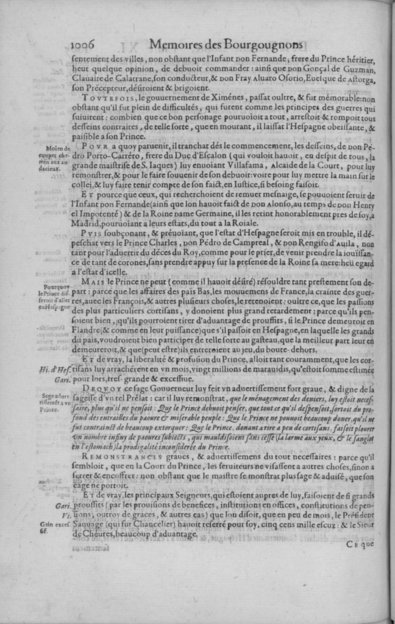 1006 Memoires des Bourgougnons
sentement des villes, non obstant que l'Infant non Fernande, frere du Prince héritier,
heut quelque opinion, de debuoir commander: ainsi que non Gonçal de Guzman,
Clauaire de Calatraue, son conducteur, & non Fray Aluaro Osorio, Euesque de Astorga,
son Précepteur, désiroient & brigoient.
TOVTEFOIS, le gouuernement de Ximénes, passat oultre, & fut mémorable: non
obstant qu'il fut plein de difficultés, qui furent comme les principes des guerres qui
suiuirent: combien que ce bon personage pouruoioit a tout, arrestoit & rompoit tous
desseins contraires, de telle sorte, que en mourant, il laissat l'Hespagne obeissante, &
paisible a son Prince.
POVR a quoy paruenir, il tranchat dés le commencement, les desseins, de non Pé-
dro Porto-Carréro, frere du Duc d'Escalon (qui vouloit hauoir, en despit de tous, la
grande maistrise de S. Iaques) luy enuoiant Villafama, alcaide de la Court, pour luy
remonstrer, & pour le faire souuenir de son debuoir: voire pour luy mettre la main sur le
collét, & luy faire tenir compte de son faict, en Iustice, si besoing faisoit.
ET pource que ceux, qui rechercheoient de remuer mesnage, se pouuoient seruir de
l'Infant non Fernande (ainsi que lon hauoit faict de non Alonso, au temps de non Henry
el Impotente) & de la Roine name Germaine, il les retint honorablement pres de soy, a
Madrid, pouruoiant a leurs estats, du tout a la Roiale.
PVIS soubçonant, & préuoiant, que l'estat d'Hespagne seroit mis en trouble, il dé-
peschat vers le Prince Charles, non Pédro de Campreal, & non Rengifo d'Auila, non
tant pour l'aduertir du déces du Roy, comme pour le prier, de venir prendre la iouissan-
ce de tant de corones, sans prendre appuy sur la presence de la Roine sa mere: heu egard
a l'estat d'icelle.
MAIS le Prince ne peut (comme il hauoit désiré) résouldre tant prestement son de-
part: parce que les affaires des païs Bas, les mouuemens de France, la crainte des guer-
res, auec les François, & autres plusieurs choses, le retenoient: oultre ce, que les passions
des plus particuliers cortisans, y donoient plus grand retardement: parce qu'ils pen-
soient bien, qu'ils pourroient tirer d'auantage de prouffits, si le Prince demeuroit en
Flandre, & comme en leur puissance: que s'il passoit en Hespagne, en laquelle les grands
du païs, voudroient bien participer de telle sorte au gasteau, que la meilleur part leur en
demeureroit, & que peut estre ils entreroient au jeu, du boute-dehors.
ET de vray, la liberalité & profusion du Prince, alloit tant couramment, que les cor-
tisans luy arrachérent en vn mois, vingt millions de marauidis, qu'estoit somme estimée
pour lors, tres-grande & excessiue.
DEQVOY ce sage Gouuerneur luy feit vn aduertissement fort graue, & digne de la
sagesse d'vn tel Prélat: car il luy remonstrat, que le ménagement des deniers, luy estoit necess-
faire, plus qu'il ne pensoit: Que le Prince deboit penser, que tout ce qu'il despensoit, sortoit du pro-
fond des entrailles du pauure & misérable peuple: Que le Prince ne pouuoit beaucoup doner qu'il ne
fut contrainct de beaucoup extorquer: Que le Prince, donant a tire a peu de cortisans, faisoit plourer
vn nombre infiny de pauures subiects, qui mauldissoient sans cesse la larme aux yeux, & le sanglot
en l'estomach, la prodigalité inconsiderée du Prince.
REMONSTRANCES graues, & aduertissemens du tout necessaires: parce qu'il
sembloit, que en la Court du Prince, les seruiteurs ne visassent a autres choses, sinon a
serrer & encoffrer: non obstant que le maistre se monstrat plus sage & aduisé, que son
eage ne portoit.
ET de vray, les principaux Seigneurs, qui estoient aupres de luy, faisoient de si grands
prouffits (par les prouisions de benefices, institutions en offices, constitutions de pen-
sions, outrois de graces, & autres cas) que lon disoit, que en peu de mois, le Président
Sauuage (qui fut Chancelier) hauoit reserré pour soy, cinq cens mille escuz: & le Sieur
de Chéures, beaucoup d'auantage.
CE que